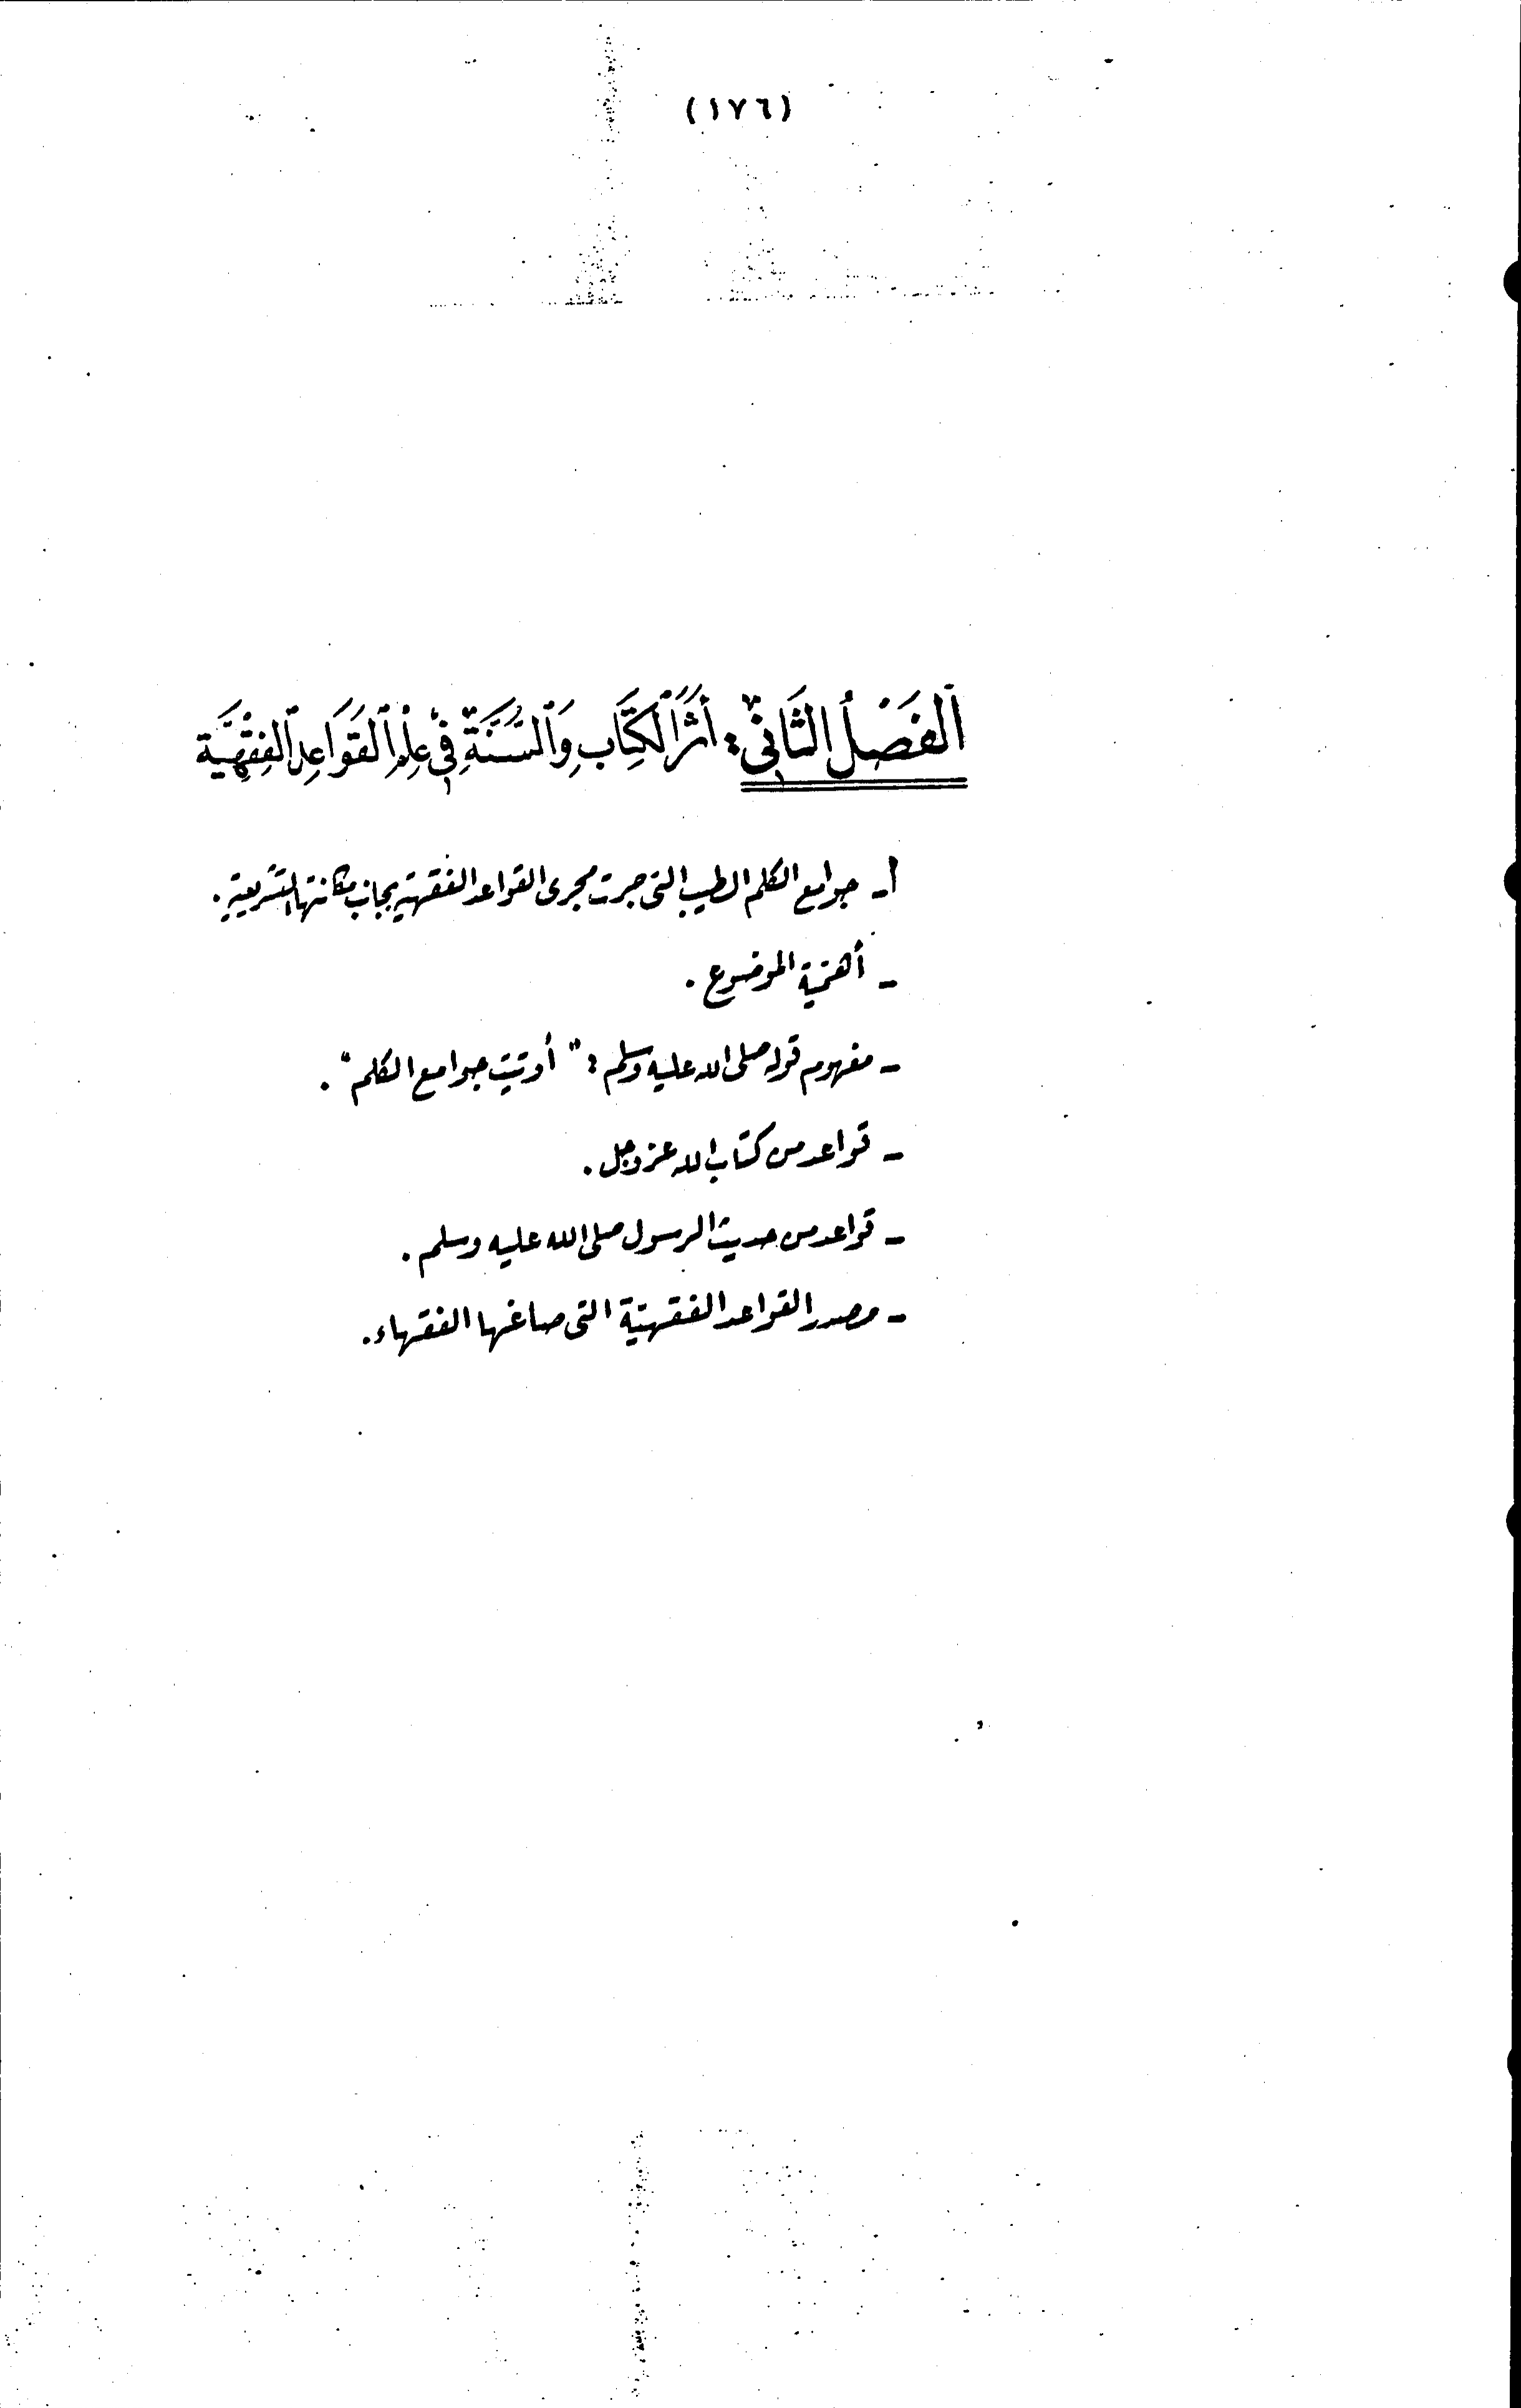 (١٧٦)
الفَصْلُ الثَّانِي : أَثَرُ الْكِتَابِ وَالسُّنَّةِ فِي عِلْمِ الْقَوَاعِدِ الْفِقْهِيَّة
أ- جوامع الكلم الطيب التى جرت مجرى القواعد الفقهية بجانب مكانتها التشريعية .
- أهمّية الموضوع .
- مفهوم قوله صلى الله عليه وسلم : " أوتيت جوامع الكلم " .
- قواعد من كتاب الله عز وجل .
- قواعد من حديث الرسول صلى الله عليه وسلم .
- مصدر القواعد الفقهيّة التى صاغها الفقهاء .